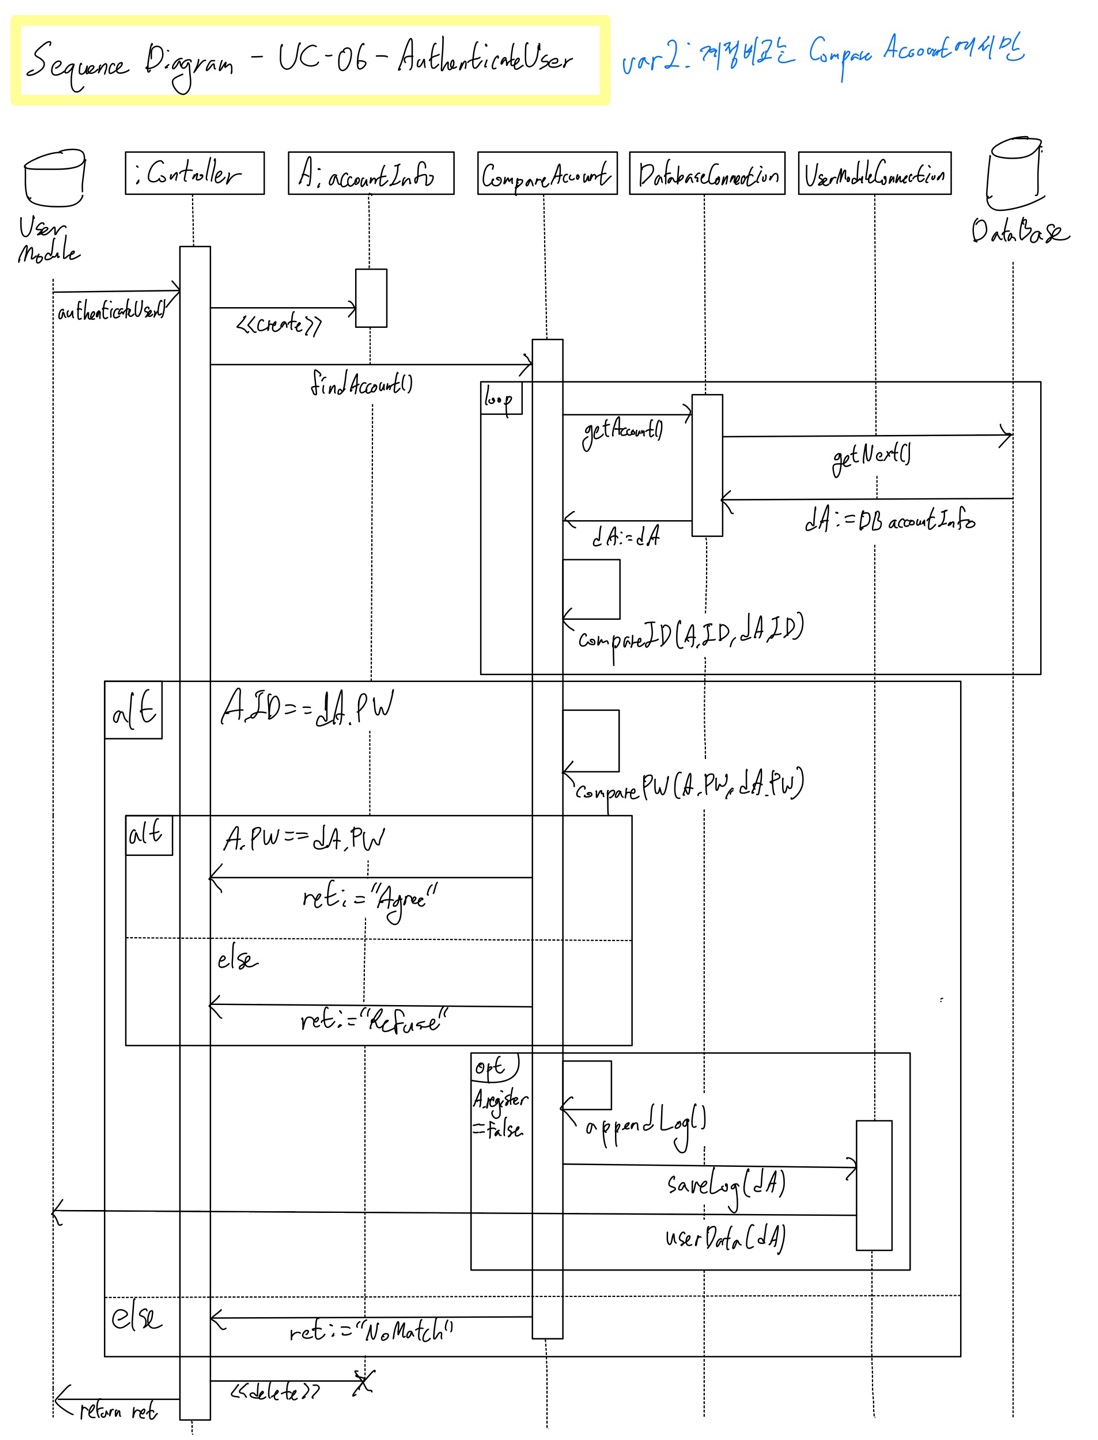 Sequence Diagram - UC-06-AuthenticateUser
var2: 계정비교는 Compare Account에서만
User Module
:Controller
A:accountInfo
CompareAccount
DatabaseConnection
UserModuleConnection
DataBase
authenticateUser()
<<create>>
findAccount()
loop
getAccount()
getNext()
dA:=DB accountInfo
dA:=dA
compareID(A.ID, dA.ID)
alt
A.ID==dA.PW
comparePW(A.PW, dA.PW)
alt
A.PW==dA.PW
ret:="Agree"
else
ret:="Refuse"
opt
A.register
=false
appendLog()
saveLog(dA)
userData(dA)
else
ret:="NoMatch"
<<delete>>
return ret